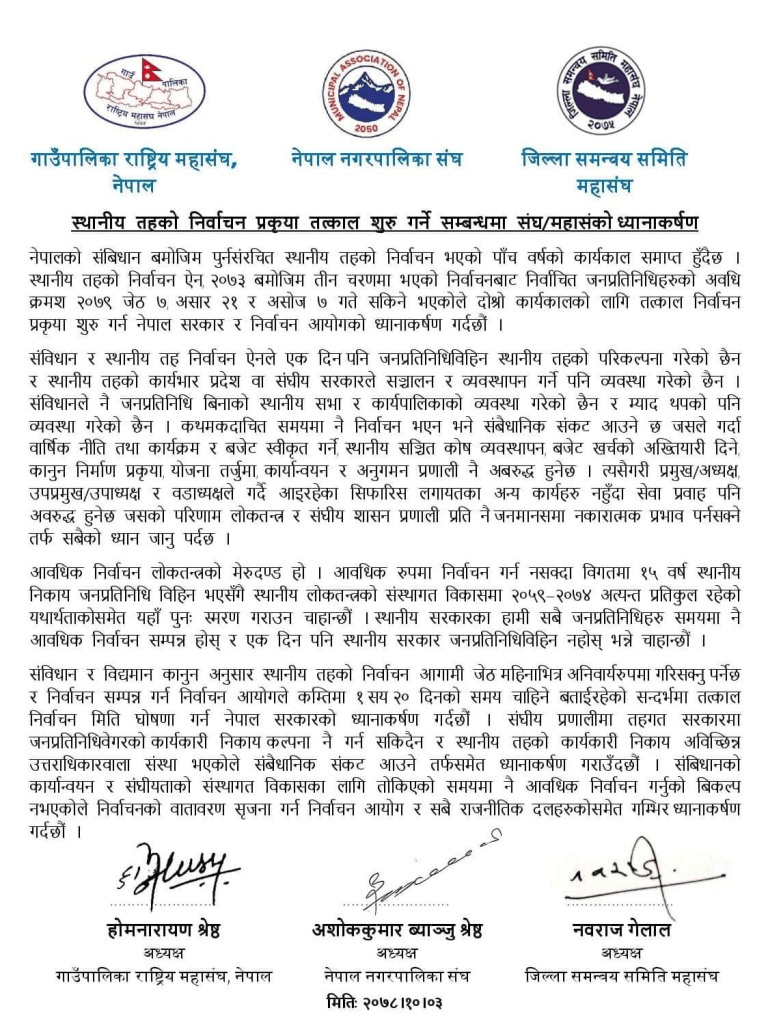 गाउँ पालिका
राष्ट्रिय महासंघ नेपाल
MUNICIPAL ASSOCIATION OF NEPAL
2050
जिल्ला समन्वय समिति महासंघ नेपाल
२०७५
गाउँपालिका राष्ट्रिय महासंघ,
नेपाल
नेपाल नगरपालिका संघ
जिल्ला समन्वय समिति
महासंघ
स्थानीय तहको निर्वाचन प्रकृया तत्काल शुरु गर्ने सम्बन्धमा संघ/महासंको ध्यानाकर्षण
नेपालको संबिधान बमोजिम पुर्नसंरचित स्थानीय तहको निर्वाचन भएको पाँच वर्षको कार्यकाल समाप्त हुँदैछ ।
स्थानीय तहको निर्वाचन ऐन, २०७३ बमोजिम तीन चरणमा भएको निर्वाचनबाट निर्वाचित जनप्रतिनिधिहरुको अवधि
क्रमश २०७९ जेठ ७, असार २१ र असोज ७ गते सकिने भएकोले दोश्रो कार्यकालको लागि तत्काल निर्वाचन
प्रकृया शुरु गर्न नेपाल सरकार र निर्वाचन आयोगको ध्यानाकर्षण गर्दछौं ।
संविधान र स्थानीय तह निर्वाचन ऐनले एक दिन पनि जनप्रतिनिधिविहिन स्थानीय तहको परिकल्पना गरेको छैन
र स्थानीय तहको कार्यभार प्रदेश वा संघीय सरकारले सञ्चालन र व्यवस्थापन गर्ने पनि व्यवस्था गरेको छैन ।
संविधानले नै जनप्रतिनिधि बिनाको स्थानीय सभा र कार्यपालिकाको व्यवस्था गरेको छैन र म्याद थपको पनि
व्यवस्था गरेको छैन । कथमकदाचित समयमा नै निर्वाचन भएन भने संबैधानिक संकट आउने छ जसले गर्दा
वार्षिक नीति तथा कार्यक्रम र बजेट स्वीकृत गर्ने, स्थानीय सञ्चित कोष व्यवस्थापन, बजेट खर्चको अख्तियारी दिने,
कानुन निर्माण प्रकृया, योजना तर्जुमा, कार्यान्वयन र अनुगमन प्रणाली नै अबरुद्ध हुनेछ । त्यसैगरी प्रमुख/अध्यक्ष,
उपप्रमुख/उपाध्यक्ष र वडाध्यक्षले गर्दै आइरहेका सिफारिस लगायतका अन्य कार्यहरु नहुँदा सेवा प्रवाह पनि
अवरुद्ध हुनेछ जसको परिणाम लोकतन्त्र र संघीय शासन प्रणाली प्रति नै जनमानसमा नकारात्मक प्रभाव पर्नसक्ने
तर्फ सबैको ध्यान जानु पर्दछ ।
आवधिक निर्वाचन लोकतन्त्रको मेरुदण्ड हो । आवधिक रुपमा निर्वाचन गर्न नसक्दा विगतमा १५ वर्ष स्थानीय
निकाय जनप्रतिनिधि विहिन भएसँगै स्थानीय लोकतन्त्रको संस्थागत विकासमा २०५९–२०७४ अत्यन्त प्रतिकुल रहेको
यथार्थताकोसमेत यहाँ पुनः स्मरण गराउन चाहान्छौं । स्थानीय सरकारका हामी सबै जनप्रतिनिधिहरु समयमा नै
आवधिक निर्वाचन सम्पन्न होस् र एक दिन पनि स्थानीय सरकार जनप्रतिनिधिविहिन नहोस् भन्ने चाहान्छौं ।
संविधान र विद्यमान कानुन अनुसार स्थानीय तहको निर्वाचन आगामी जेठ महिनाभित्र अनिवार्यरुपमा गरिसक्नु पर्नेछ
र निर्वाचन सम्पन्न गर्न निर्वाचन आयोगले कम्तिमा १ सय २० दिनको समय चाहिने बताईरहेको सन्दर्भमा तत्काल
निर्वाचन मिति घोषणा गर्न नेपाल सरकारको ध्यानाकर्षण गर्दछौं । संघीय प्रणालीमा तहगत सरकारमा
जनप्रतिनिधिवेगरको कार्यकारी निकाय कल्पना नै गर्न सकिदैन र स्थानीय तहको कार्यकारी निकाय अविच्छिन्न
उत्तराधिकारवाला संस्था भएकोले संबैधानिक संकट आउने तर्फसमेत ध्यानाकर्षण गराउँदछौं । संबिधानको
कार्यान्वयन र संघीयताको संस्थागत विकासका लागि तोकिएको समयमा नै आवधिक निर्वाचन गर्नुको बिकल्प
नभएकोले निर्वाचनको वातावरण सृजना गर्न निर्वाचन आयोग र सबै राजनीतिक दलहरुकोसमेत गम्भिर ध्यानाकर्षण
गर्दछौं ।
होमनारायण श्रेष्ठ
अध्यक्ष
गाउँपालिका राष्ट्रिय महासंघ, नेपाल
अशोककुमार ब्याञ्जु श्रेष्ठ
अध्यक्ष
नेपाल नगरपालिका संघ
नवराज गेलाल
अध्यक्ष
जिल्ला समन्वय समिति महासंघ
मितिः २०७८।१०।०३